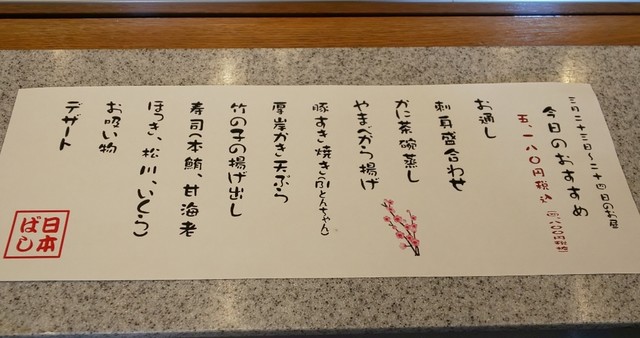 三月二十三日〜二十四日のお昼
今日のおすすめ
五、一八〇円税込
お通し
刺身盛合わせ
かに茶碗蒸し
やまべから揚げ
豚すき焼き(ふじとんちゃん)
厚岸かき天ぷら
竹の子の揚げ出し
寿司(本鮪、甘海老
ほっき、松川、いくら)
お吸い物
デザート
日本ばし